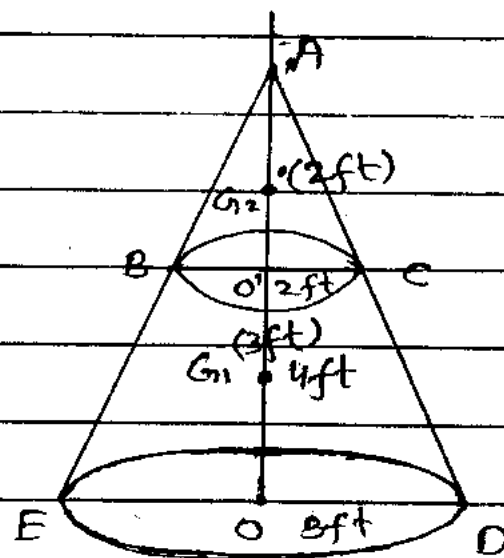 A
(2ft)
G2
B O' 2ft C
(3ft)
G1 4ft
E O 3ft D